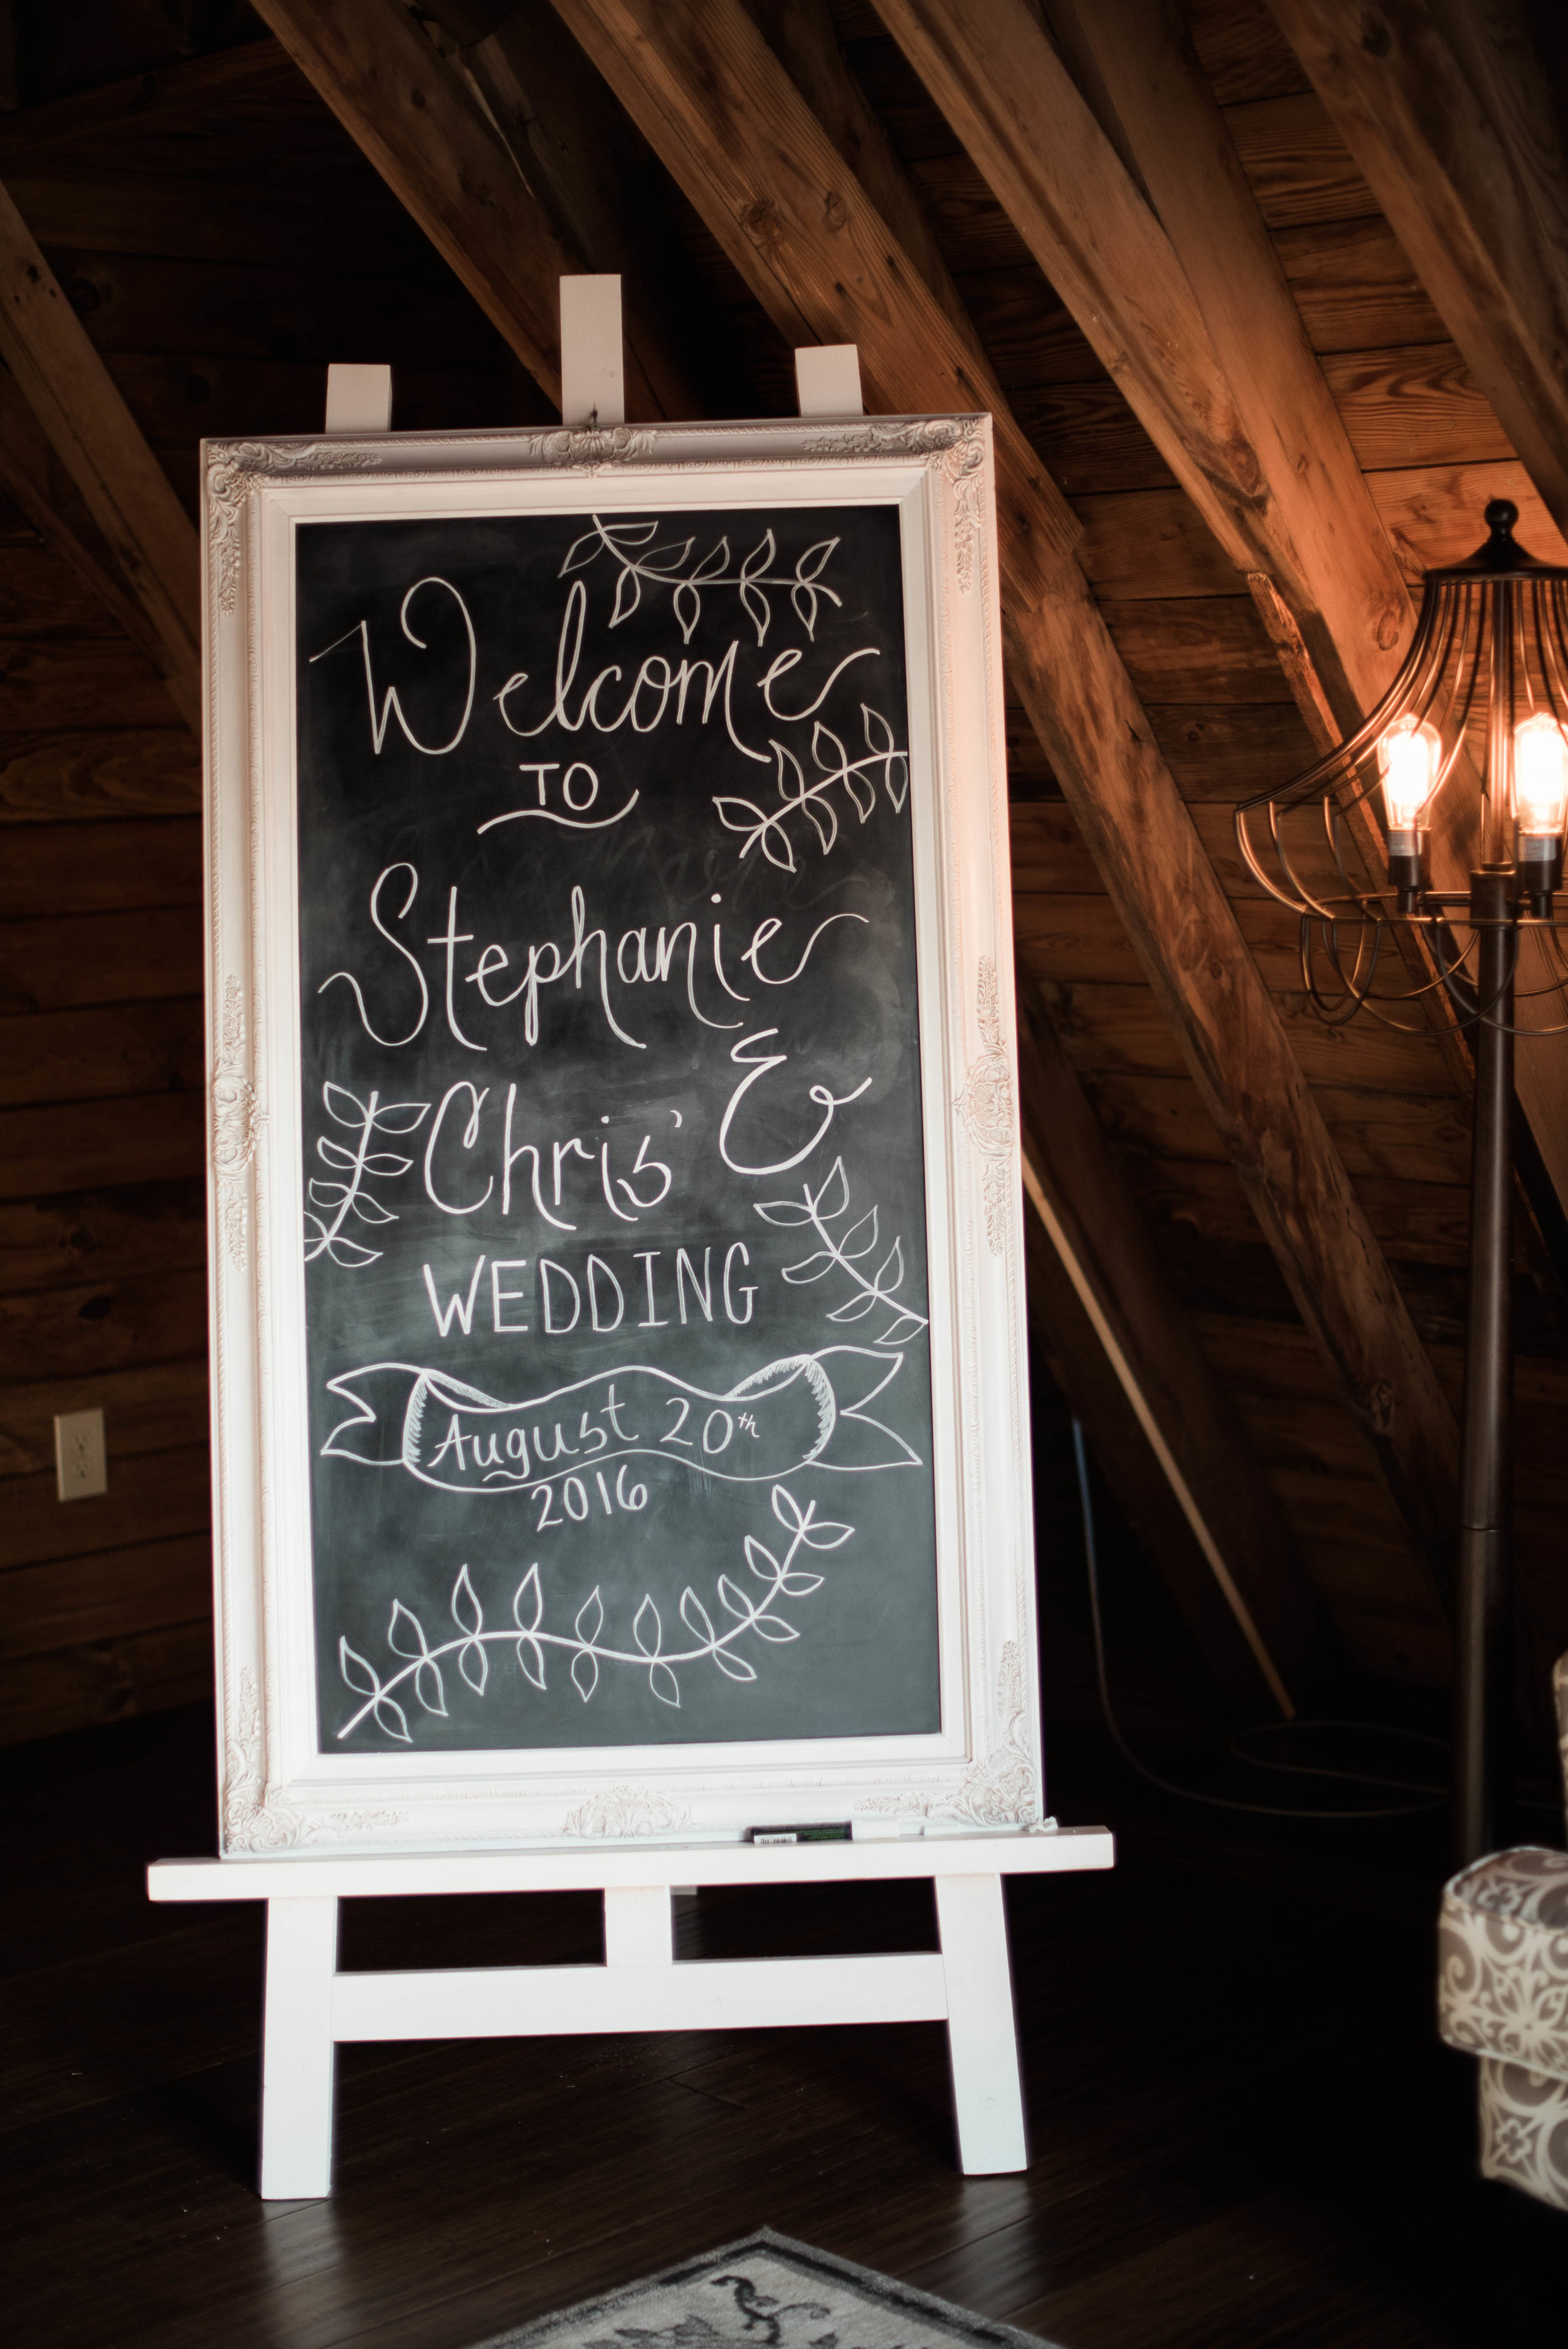 Welcome
TO
Stephanie
&
Chris'
WEDDING
August 20th
2016